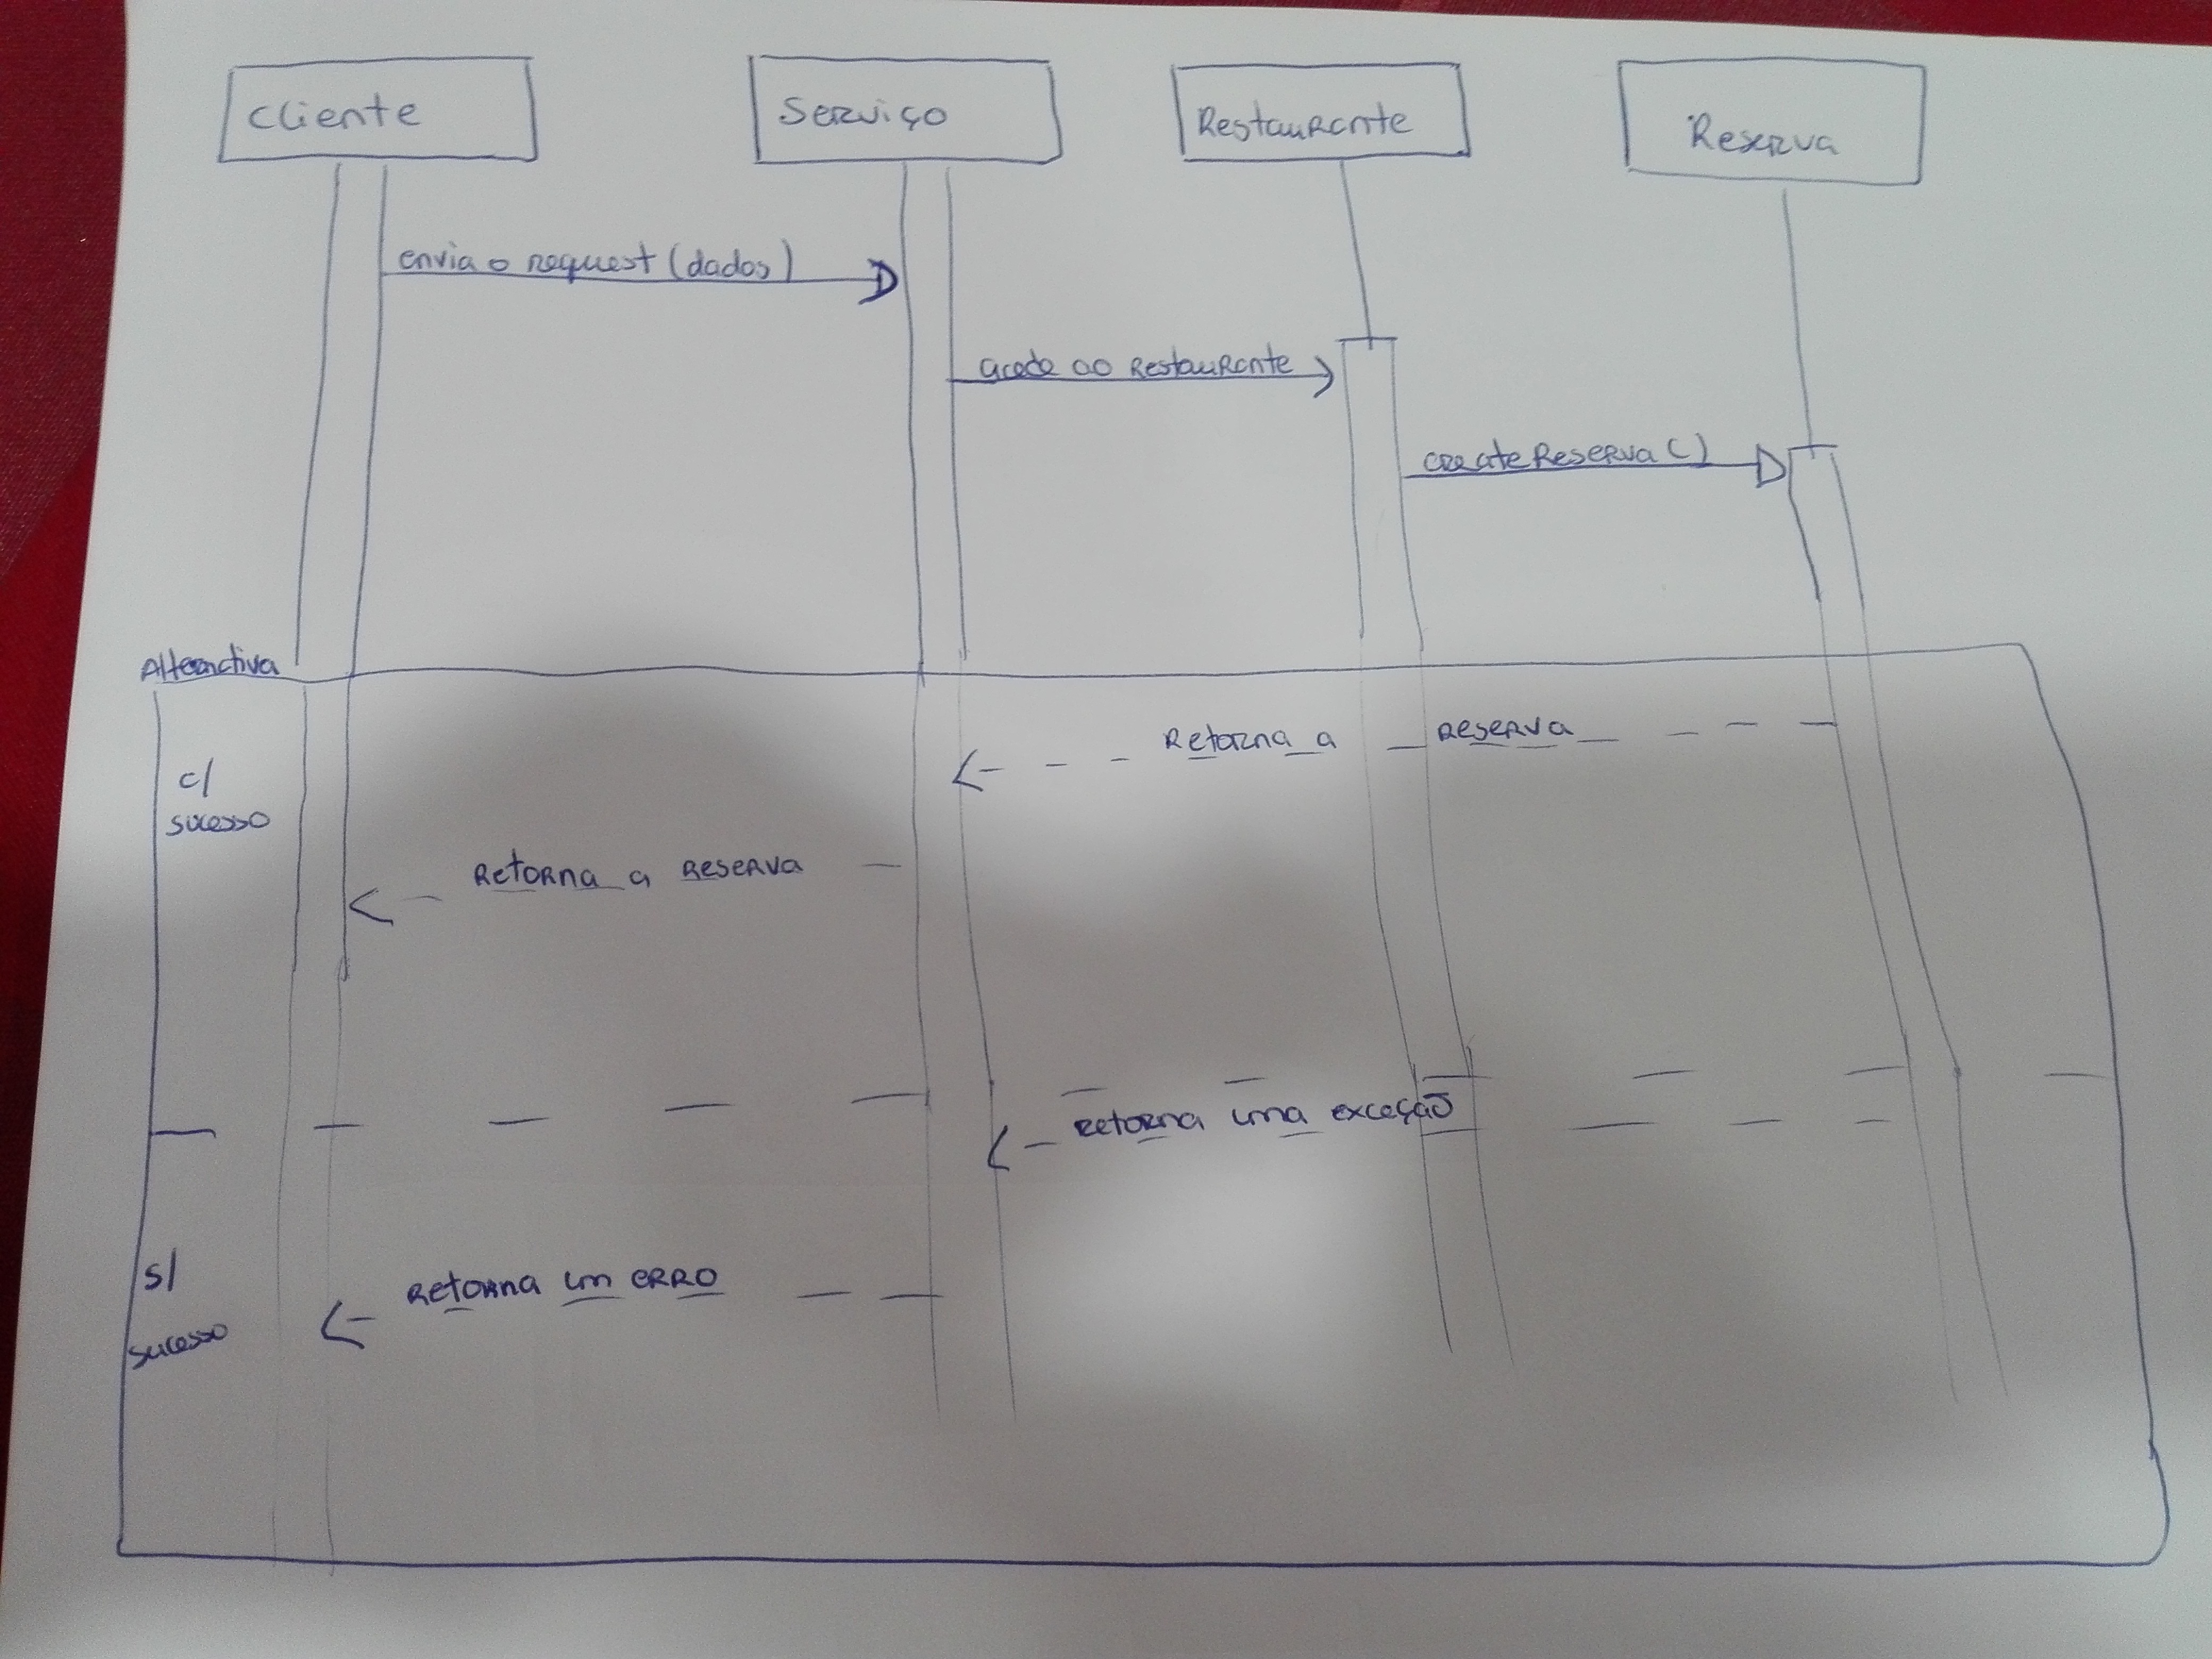 Cliente
Serviço
Restaurante
Reserva
envia o request (dados)
acede ao Restaurante
createReserva ( )
Alternativa
Retorna a reserva
c/
sucesso
Retorna a reserva
retorna uma exceção
s/
sucesso
retorna um erro